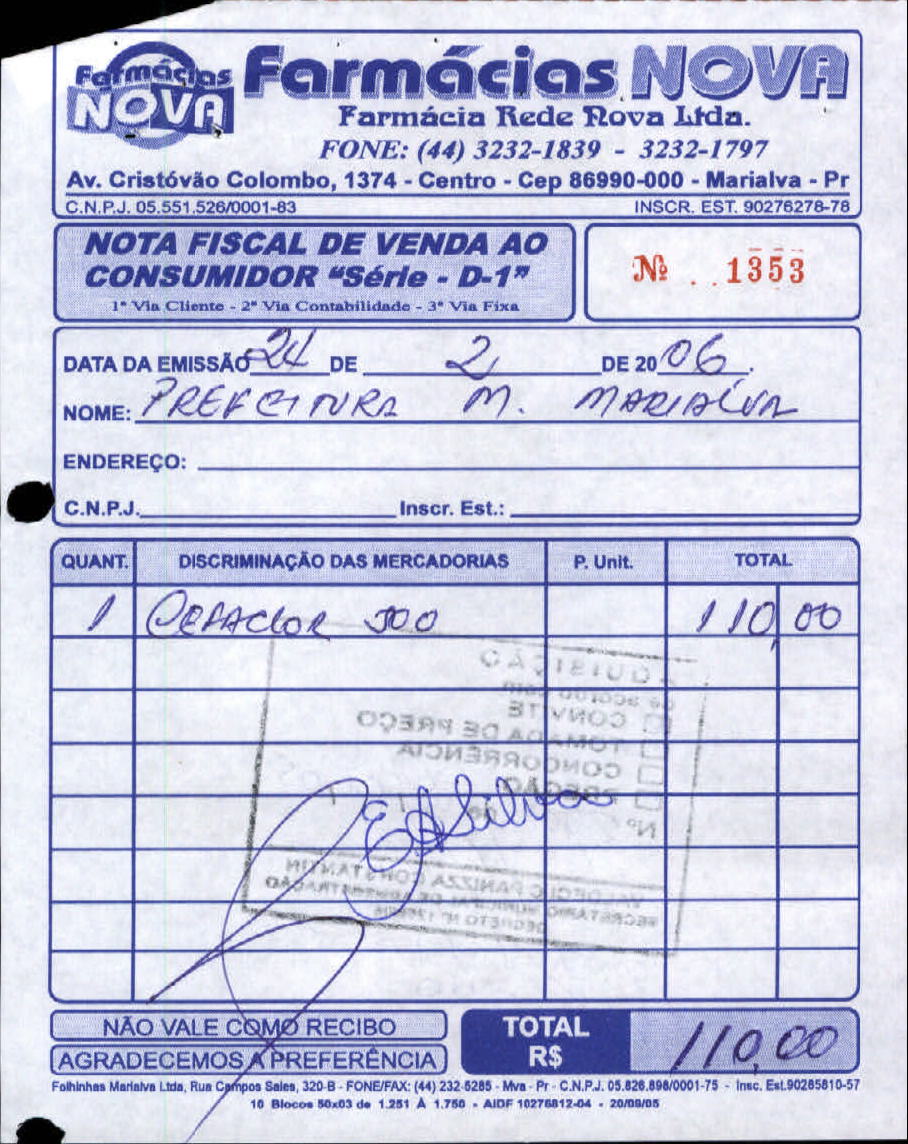 Farmácias NOVA
Farmácias NOVA
Farmácia Rede Nova Ltda.
FONE: (44) 3232-1839 - 3232-1797
Av. Cristóvão Colombo, 1374 - Centro - Cep 86990-000 - Marialva - Pr
C.N.P.J. 05.551.526/0001-83 INSCR. EST. 90276278-78
NOTA FISCAL DE VENDA AO
CONSUMIDOR "Série - D-1"
1ª Via Cliente - 2ª Via Contabilidade - 3ª Via Fixa
Nº 1353
DATA DA EMISSÃO 24 DE 2 DE 2006.
NOME: PREFEITURA M. MARIALVA
ENDEREÇO:
C.N.P.J. Inscr. Est.:
QUANT. DISCRIMINAÇÃO DAS MERCADORIAS P. Unit. TOTAL
1 CEFACLOR 500 110,00
QUISIÇÃO
de acordo com
CONVITE
TOMADA DE PREÇO
CONCORRÊNCIA
PREGÃO
Nº
PANIZZA CONSTANTIN
SECRETARIO MUNICIPAL DE ADMINISTRAÇÃO
DECRETO Nº
NÃO VALE COMO RECIBO
AGRADECEMOS A PREFERÊNCIA
TOTAL R$ 110,00
Folhinhas Marialva Ltda, Rua Campos Sales, 320-B - FONE/FAX: (44) 232-5285 - Mva - Pr - C.N.P.J. 05.826.898/0001-75 - Insc. Est.90285810-57
10 Blocos 50x03 de 1.251 À 1.750 - AIDF 10276812-04 - 20/09/05